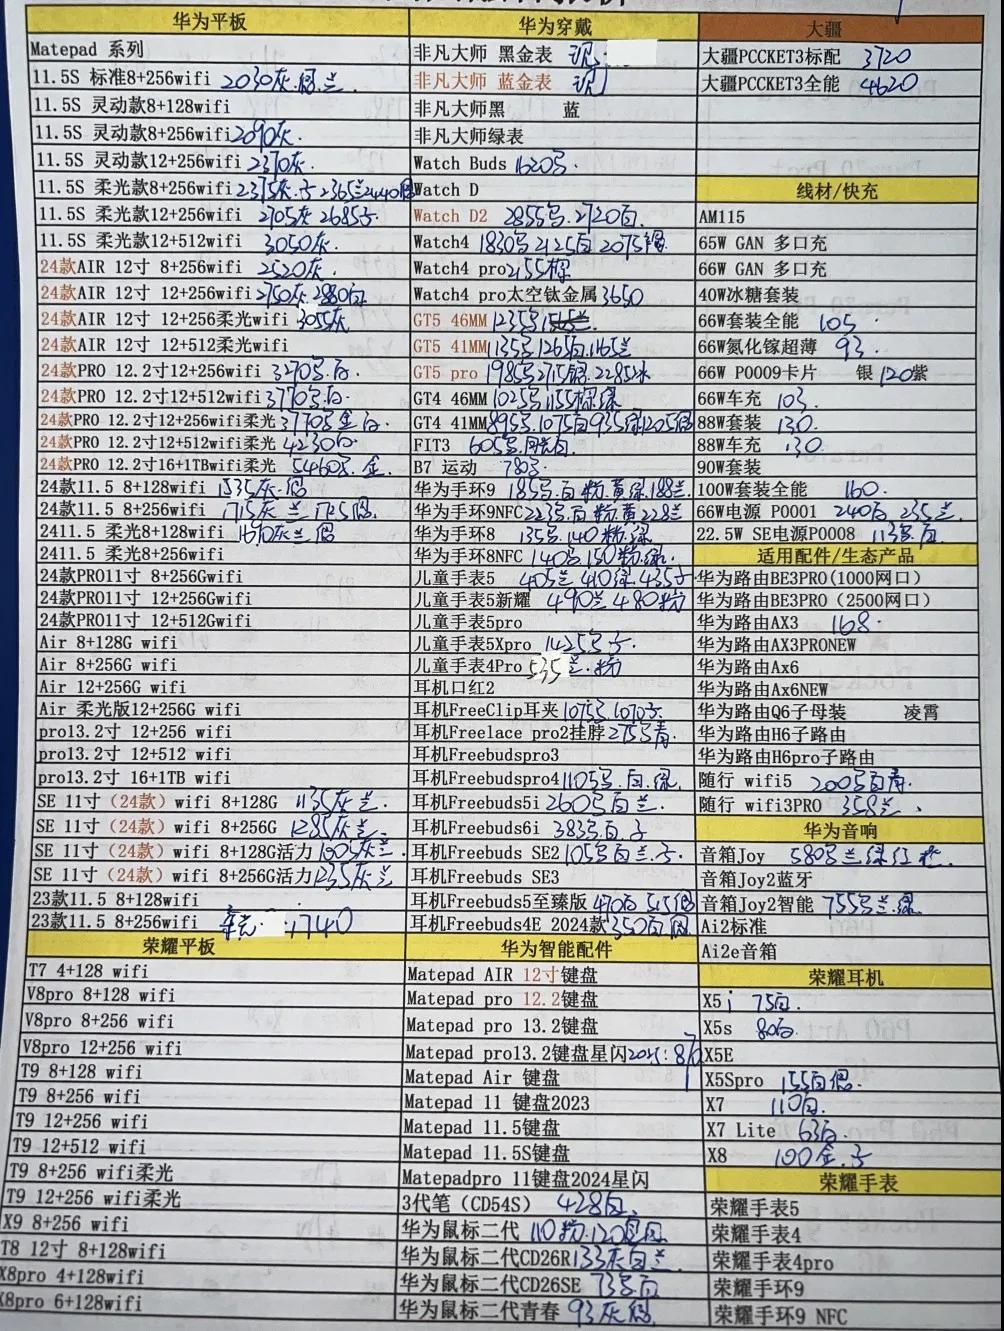 华为平板
Matepad 系列
11.5S 标准8+256wifi 2030灰.
11.5S 灵动款8+128wifi
11.5S 灵动款8+256wifi 2090灰.
11.5S 灵动款12+256wifi 2370灰.
11.5S 柔光款8+256wifi
11.5S 柔光款12+256wifi 2705灰
11.5S 柔光款12+512wifi 3050灰.
24款AIR 12寸 8+256wifi 2520灰.
24款AIR 12寸 12+256wifi 2750灰 2880白
24款AIR 12寸 12+256柔光wifi 3055灰
24款AIR 12寸 12+512柔光wifi
24款PRO 12.2寸12+256wifi 3270 白.
24款PRO 12.2寸12+512wifi 3770 白.
24款PRO 12.2寸12+256wifi柔光 3770 金白.
24款PRO 12.2寸12+512wifi柔光 4230白.
24款PRO 12.2寸16+1TBwifi柔光 5460 金.
24款11.5 8+128wifi 1535灰.
24款11.5 8+256wifi 1715灰 兰
2411.5 柔光8+128wifi 1690灰兰
2411.5 柔光8+256wifi
24款PRO11寸 8+256Gwifi
24款PRO11寸 12+256Gwifi
24款PRO11寸 12+512Gwifi
Air 8+128G wifi
Air 8+256G wifi
Air 12+256G wifi
Air 柔光版12+256G wifi
pro13.2寸 12+256 wifi
pro13.2寸 12+512 wifi
pro13.2寸 16+1TB wifi
SE 11寸(24款) wifi 8+128G 1135灰兰.
SE 11寸(24款) wifi 8+256G 1285灰兰.
SE 11寸(24款) wifi 8+128G活力 1005灰兰.
SE 11寸(24款) wifi 8+256G活力 灰兰
23款11.5 8+128wifi
23款11.5 8+256wifi 1740
荣耀平板
T7 4+128 wifi
V8pro 8+128 wifi
V8pro 8+256 wifi
V8pro 12+256 wifi
T9 8+128 wifi
T9 8+256 wifi
T9 12+256 wifi
T9 12+512 wifi
T9 8+256 wifi柔光
T9 12+256 wifi柔光
X9 8+256 wifi
T8 12寸 8+128wifi
X8pro 4+128wifi
X8pro 6+128wifi
华为穿戴
非凡大师 黑金表 现
非凡大师 蓝金表 现
非凡大师黑 蓝
非凡大师绿表
Watch Buds 1620
Watch D
Watch D2 2855 2720白.
Watch4 1830 2125白 2075
Watch4 pro 2155棕
Watch4 pro太空钛金属 3650
GT5 46MM 1235
GT5 41MM 1135 1265白 1165兰
GT5 pro 1985 2715 2285
GT4 46MM 1025 1155棕绿
GT4 41MM 895 1075白 935绿 1205
FIT3 605
B7 运动 780
华为手环9 185 白 粉.黄绿.188兰.
华为手环9NFC 223 白 粉黄 228兰
华为手环8 135 140 粉.绿
华为手环8NFC 140 150粉.绿.
儿童手表5 405兰 410绿
儿童手表5新耀 490兰 480粉
儿童手表5pro
儿童手表5Xpro 1425
儿童手表4Pro 535兰.粉
耳机口红2
耳机FreeClip耳夹 1075 1070
耳机Freelace pro2挂脖 275 青.
耳机Freebudspro3
耳机Freebudspro4 1105 白.绿.
耳机Freebuds5i 260 白兰.
耳机Freebuds6i 383 白
耳机Freebuds SE2 105 白兰
耳机Freebuds SE3
耳机Freebuds5至臻版 470白
耳机Freebuds4E 2024款 350白
华为智能配件
Matepad AIR 12寸键盘
Matepad pro 12.2键盘
Matepad pro 13.2键盘
Matepad pro13.2键盘星闪
Matepad Air 键盘
Matepad 11 键盘2023
Matepad 11.5键盘
Matepad 11.5S键盘
Matepadpro 11键盘2024星闪
3代笔(CD54S) 428白.
华为鼠标二代 110粉.120
华为鼠标二代CD26R 133灰白兰.
华为鼠标二代CD26SE 73 白
华为鼠标二代青春 93灰
大疆
大疆PCCKET3标配 3720
大疆PCCKET3全能 4620
线材/快充
AM115
65W GAN 多口充
66W GAN 多口充
40W冰糖套装
66W套装全能 105
66W氮化镓超薄 93.
66W P0009卡片 银 120紫
66W车充 103.
88W套装 130.
88W车充 130
90W套装
100W套装全能 160.
66W电源 P0001 240白 235兰
22.5W SE电源P0008 113 白
适用配件/生态产品
华为路由BE3PRO(1000网口)
华为路由BE3PRO(2500网口)
华为路由AX3 168
华为路由AX3PRONEW
华为路由Ax6
华为路由Ax6NEW
华为路由Q6子母装 凌霄
华为路由H6子路由
华为路由H6pro子路由
随行 wifi5 200 白青
随行 wifi3PRO 358兰、
华为音响
音箱Joy 580 兰绿红
音箱Joy2蓝牙
音箱Joy2智能 755 兰.绿
Ai2标准
Ai2e音箱
荣耀耳机
X5i 75白.
X5s 80白.
X5E
X5Spro 155白
X7 110白.
X7 Lite 63白.
X8 100金.
荣耀手表
荣耀手表5
荣耀手表4
荣耀手表4pro
荣耀手环9
荣耀手环9 NFC